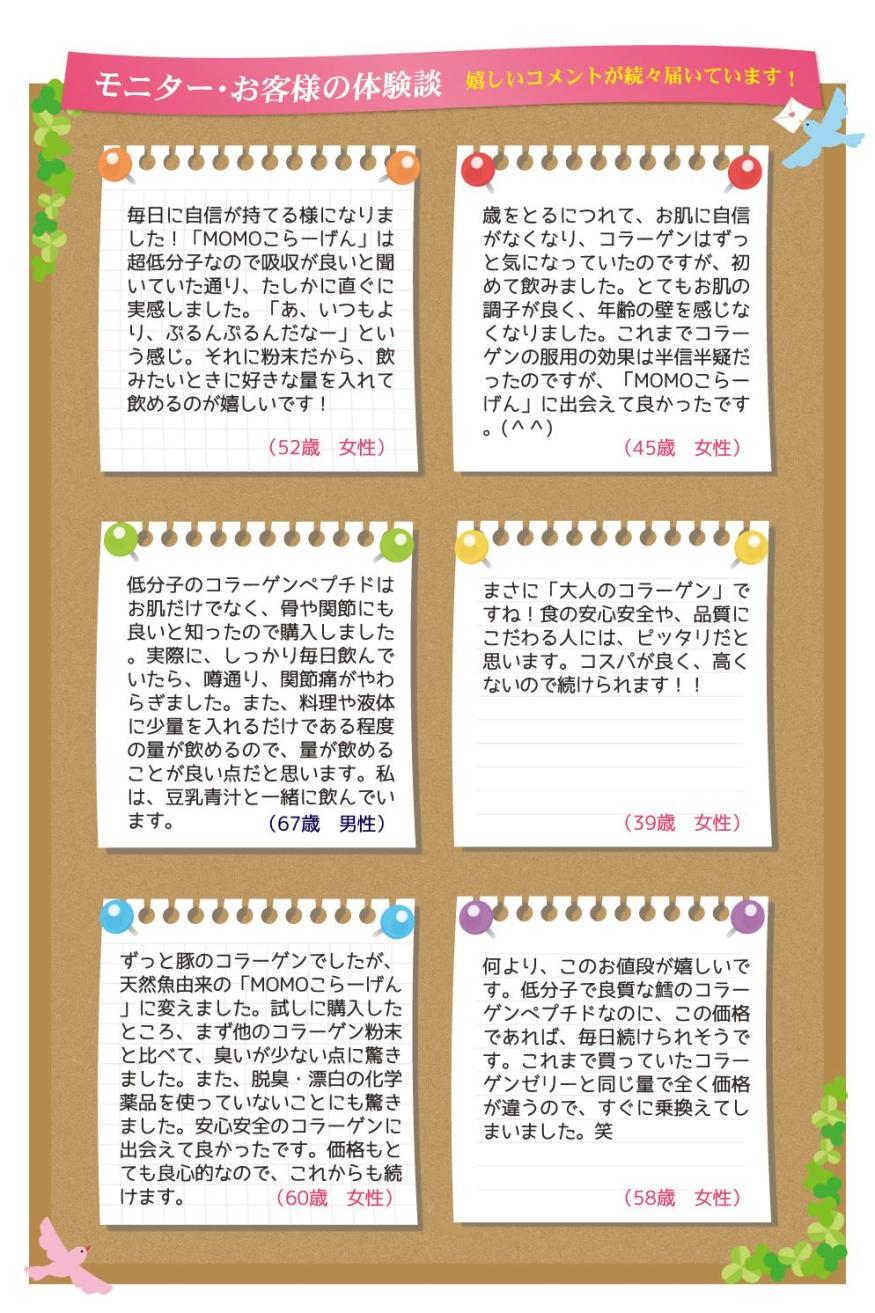 モニター・お客様の体験談 嬉しいコメントが続々届いています！
毎日に自信が持てる様になりま
した！「MOMOこらーげん」は
超低分子なので吸収が良いと聞
いていた通り、たしかに直ぐに
実感しました。「あ、いつもよ
り、ぷるんぷるんだなー」とい
う感じ。それに粉末だから、飲
みたいときに好きな量を入れて
飲めるのが嬉しいです！
（52歳　女性）
歳をとるにつれて、お肌に自信
がなくなり、コラーゲンはずっ
と気になっていたのですが、初
めて飲みました。とてもお肌の
調子が良く、年齢の壁を感じな
くなりました。これまでコラー
ゲンの服用の効果は半信半疑だ
ったのですが、「MOMOこらー
げん」に出会えて良かったです
。(＾＾)
（45歳　女性）
低分子のコラーゲンペプチドは
お肌だけでなく、骨や関節にも
良いと知ったので購入しました
。実際に、しっかり毎日飲んで
いたら、噂通り、関節痛がやわ
らぎました。また、料理や液体
に少量を入れるだけである程度
の量が飲めるので、量が飲める
ことが良い点だと思います。私
は、豆乳青汁と一緒に飲んでい
ます。
（67歳　男性）
まさに「大人のコラーゲン」で
すね！食の安心安全や、品質に
こだわる人には、ピッタリだと
思います。コスパが良く、高く
ないので続けられます！！
（39歳　女性）
ずっと豚のコラーゲンでしたが、
天然魚由来の「MOMOこらーげん
」に変えました。試しに購入した
ところ、まず他のコラーゲン粉末
と比べて、臭いが少ない点に驚き
ました。また、脱臭・漂白の化学
薬品を使っていないことにも驚き
ました。安心安全のコラーゲンに
出会えて良かったです。価格もと
ても良心的なので、これからも続
けます。
（60歳　女性）
何より、このお値段が嬉しいで
す。低分子で良質な鱈のコラー
ゲンペプチドなのに、この価格
であれば、毎日続けられそうで
す。これまで買っていたコラー
ゲンゼリーと同じ量で全く価格
が違うので、すぐに乗換えてし
まいました。笑
（58歳　女性）